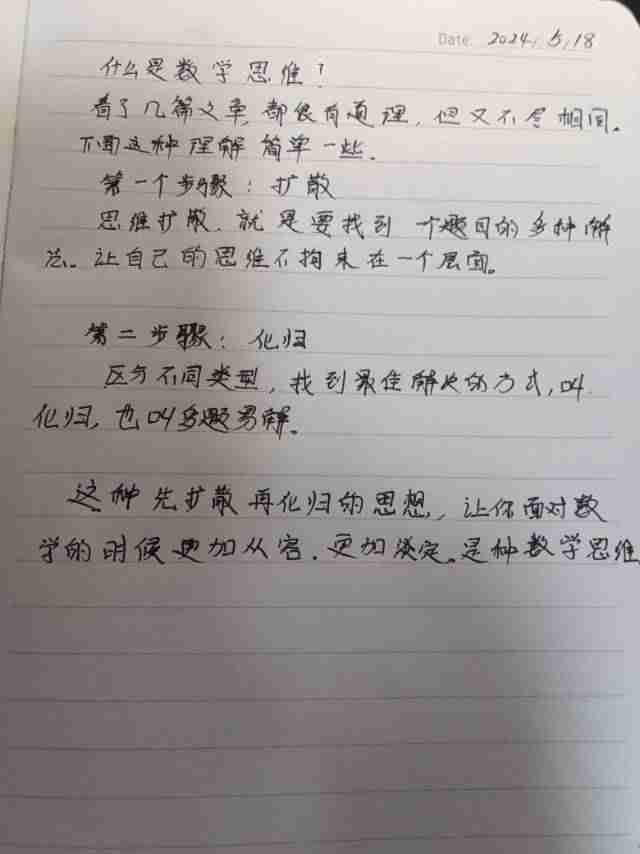 Date 2024.5.18
什么是数学思维？
看了几篇文章,都很有道理,但又不尽相同。
下面这种理解简单一些.
第一个步骤：扩散
思维扩散.就是要找到一个题目的多种解
法。让自己的思维不拘束在一个层面。
第二步骤：化归
区分不同类型,找到最佳解决的方式,叫
化归,也叫多题易解。
这种先扩散再化归的思想,让你面对数
学的时候更加从容.更加淡定.是种数学思维